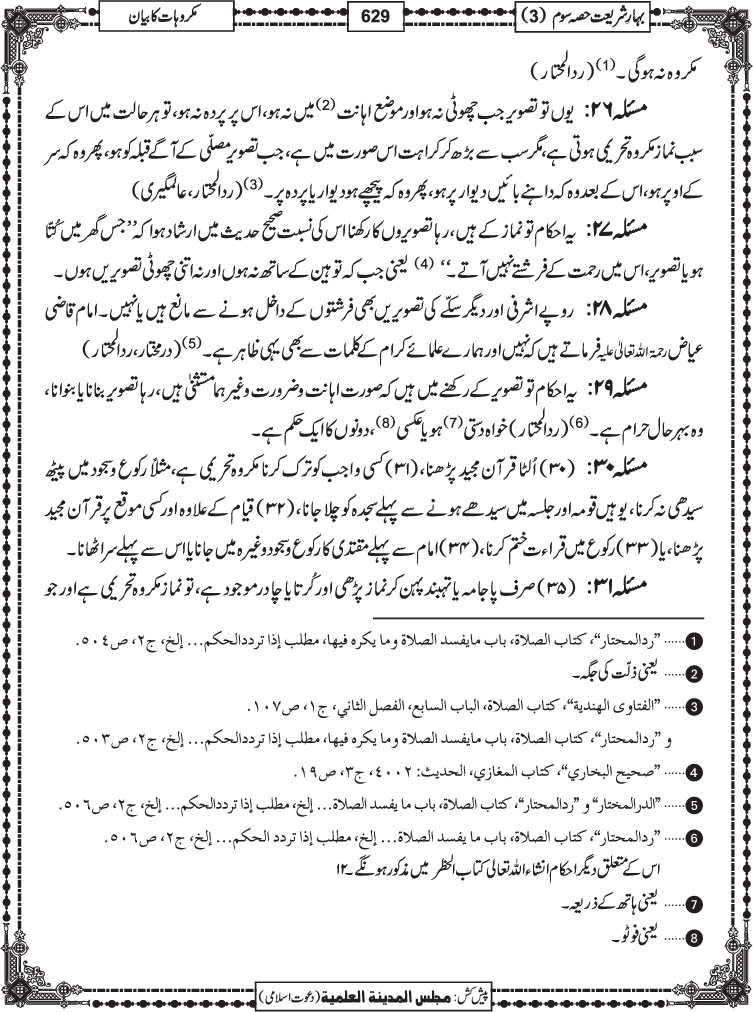 بہارِ شریعت حصہ سوم (3)
629
مکروہات کا بیان
مکروہ نہ ہوگی۔ (1) (ردالمحتار)
مسئلہ ۲۶: یوں تو تصویر جب چھوٹی نہ ہو اور موضع اہانت (2) میں نہ ہو، اس پر پردہ نہ ہو، تو ہر حالت میں اس کے
سبب نماز مکروہ تحریمی ہوتی ہے، مگر سب سے بڑھ کر کراہت اس صورت میں ہے، جب تصویر مصلّی کے آگے قبلہ کو ہو، پھر وہ کہ سر
کے اوپر ہو، اس کے بعد وہ کہ داہنے بائیں دیوار پر ہو، پھر وہ کہ پیچھے ہو دیوار یا پردہ پر۔ (3) (ردالمحتار، عالمگیری)
مسئلہ ۲۷: یہ احکام تو نماز کے ہیں، رہا تصویروں کا رکھنا اس کی نسبت صحیح حدیث میں ارشاد ہوا کہ ’’جس گھر میں کُتّا
ہو یا تصویر، اس میں رحمت کے فرشتے نہیں آتے۔‘‘ (4) یعنی جب کہ توہین کے ساتھ نہ ہوں اور نہ اتنی چھوٹی تصویریں ہوں۔
مسئلہ ۲۸: روپے اشرفی اور دیگر سکّے کی تصویریں بھی فرشتوں کے داخل ہونے سے مانع ہیں یا نہیں۔ امام قاضی
عیاض رحمۃ اللہ تعالیٰ علیہ فرماتے ہیں کہ نہیں اور ہمارے علمائے کرام کے کلمات سے بھی یہی ظاہر ہے۔ (5) (درمختار، ردالمحتار)
مسئلہ ۲۹: یہ احکام تو تصویر کے رکھنے میں ہیں کہ صورت اہانت و ضرورت وغیرہما مستثنیٰ ہیں، رہا تصویر بنانا یا بنوانا،
وہ بہر حال حرام ہے۔ (6) (ردالمحتار) خواہ دستی (7) ہو یا عکسی (8)، دونوں کا ایک حکم ہے۔
مسئلہ ۳۰: (۳۰) اُلٹا قرآن مجید پڑھنا، (۳۱) کسی واجب کو ترک کرنا مکروہ تحریمی ہے، مثلاً رکوع و سجود میں پیٹھ
سیدھی نہ کرنا، یوہیں قومہ اور جلسہ میں سیدھے ہونے سے پہلے سجدہ کو چلا جانا، (۳۲) قیام کے علاوہ اور کسی موقع پر قرآن مجید
پڑھنا، یا (۳۳) رکوع میں قراءت ختم کرنا، (۳۴) امام سے پہلے مقتدی کا رکوع و سجود وغیرہ میں جانا یا اس سے پہلے سر اٹھانا۔
مسئلہ ۳۱: (۳۵) صرف پاجامہ یا تہبند پہن کر نماز پڑھی اور کُرتا یا چادر موجود ہے، تو نماز مکروہ تحریمی ہے اور جو
1 ...... ”ردالمحتار“، كتاب الصلاة، باب مايفسد الصلاة وما يكره فيها، مطلب إذا تردد الحكم... إلخ، ج٢، ص٥٠٤.
2 ...... یعنی ذلّت کی جگہ۔
3 ...... ”الفتاوى الهندية“، كتاب الصلاة، الباب السابع، الفصل الثاني، ج١، ص١٠٧.
و ”ردالمحتار“، كتاب الصلاة، باب مايفسد الصلاة وما يكره فيها، مطلب إذا تردد الحكم... إلخ، ج٢، ص٥٠٣.
4 ...... ”صحيح البخاري“، كتاب المغازي، الحديث: ٤٠٠٢، ج٣، ص١٩.
5 ...... ”الدرالمختار“ و ”ردالمحتار“، كتاب الصلاة، باب ما يفسد الصلاة... إلخ، مطلب إذا تردد الحكم... إلخ، ج٢، ص٥٠٦.
6 ...... ”ردالمحتار“، كتاب الصلاة، باب ما يفسد الصلاة... إلخ، مطلب إذا تردد الحكم... إلخ، ج٢، ص٥٠٦.
اس کے متعلق دیگر احکام انشاء اللہ تعالی کتاب الحظر میں مذکور ہونگے۔ ۱۲
7 ...... یعنی ہاتھ کے ذریعہ۔
8 ...... یعنی فوٹو۔
پیش کش: مجلس المدينة العلمية (دعوت اسلامی)